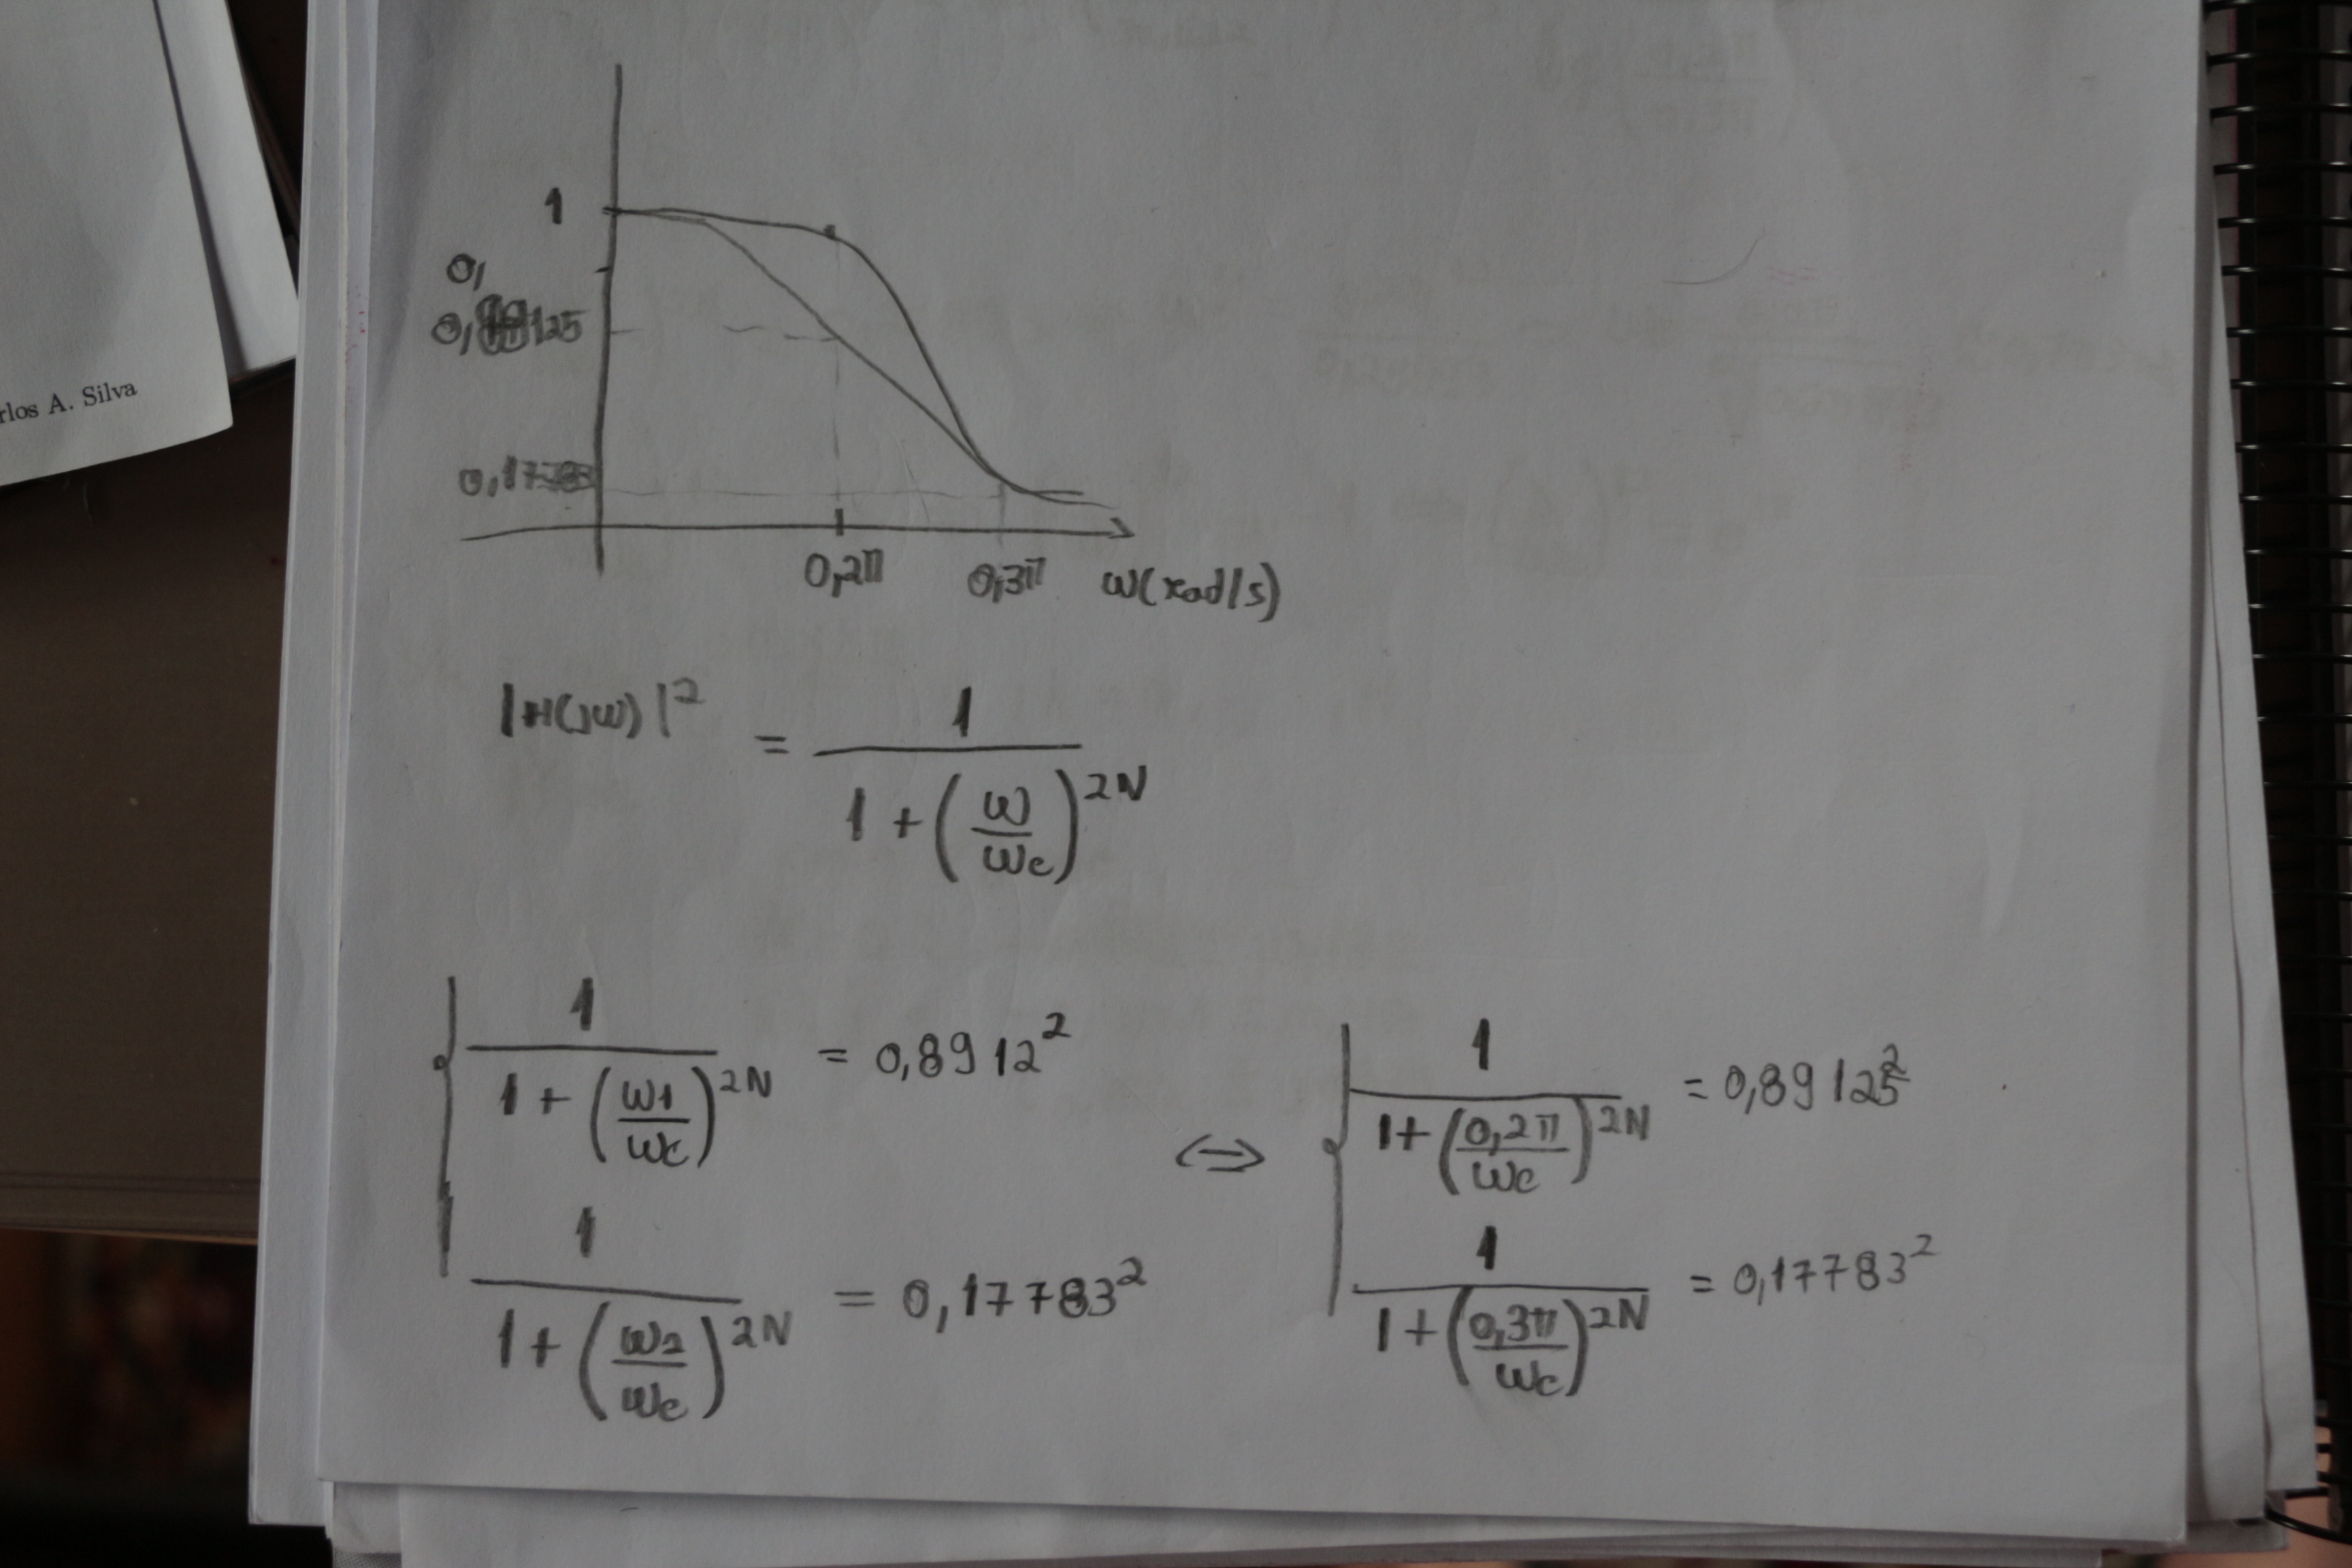 rlos A. Silva
1
0,
0,89125
0,17783
0,2π 0,3π ω(rad/s)
|H(jω)|² = 1 / (1 + (ω/ωc)^2N)
{ 1 / (1 + (ω1/ωc)^2N) = 0,8912² ⇔ { 1 / (1 + (0,2π/ωc)^2N) = 0,89125²
1 / (1 + (ω2/ωc)^2N) = 0,17783² 1 / (1 + (0,3π/ωc)^2N) = 0,17783²